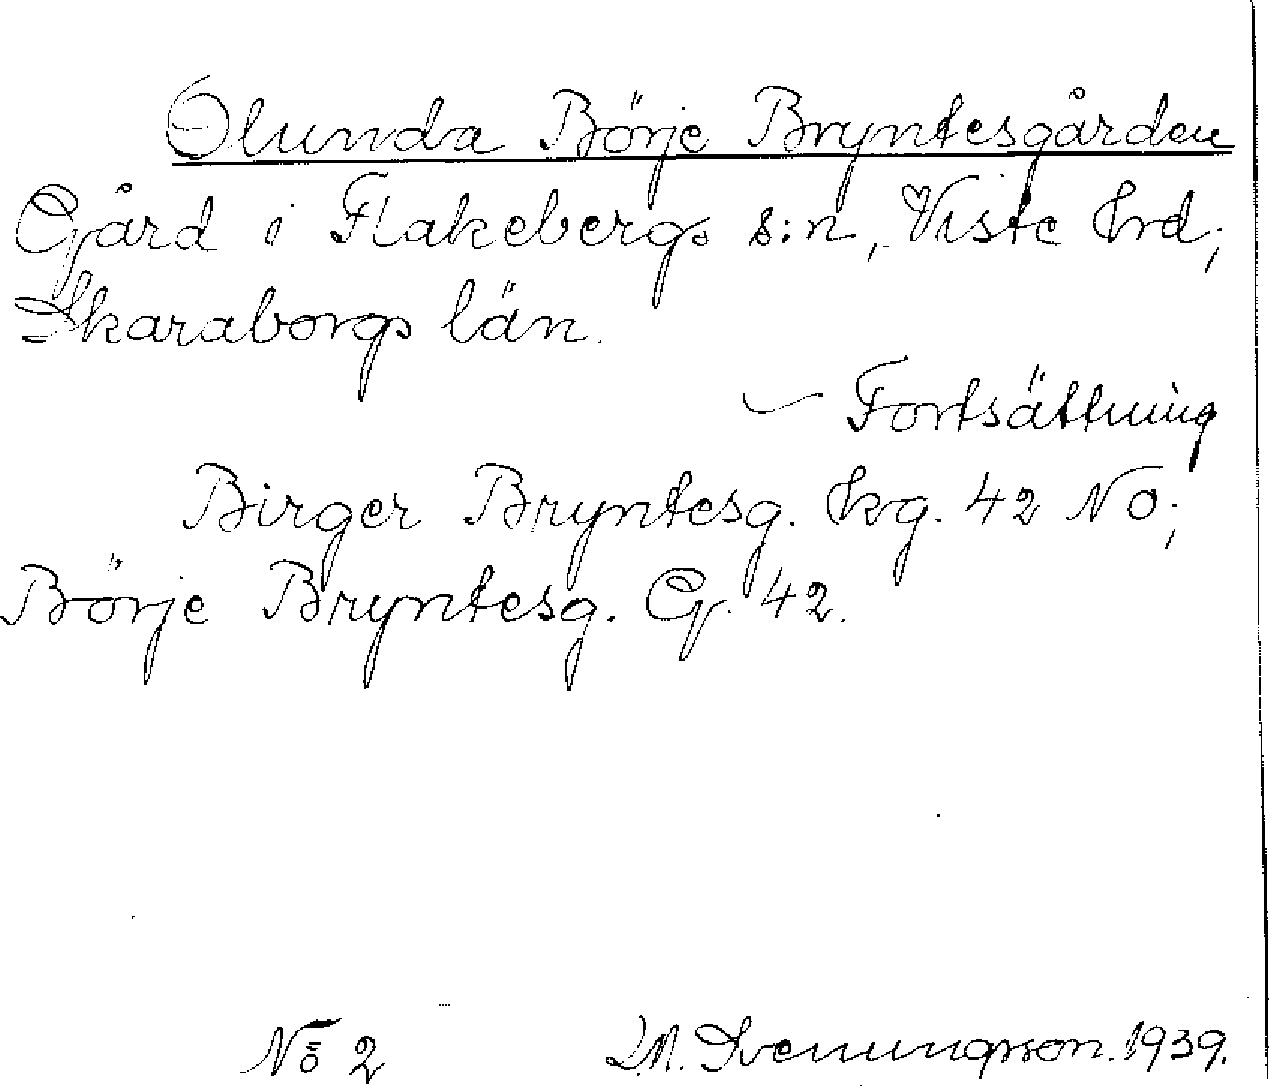 Olunda Börje Bryntesgården
Gård i Flakebergs s:n, Viste hrd,
Skaraborgs län.
Fortsättning
Birger Bryntesg. kg. 42 NO;
Börje Bryntesg. G. 42.
No 2 M. Svenungsson. 1939.